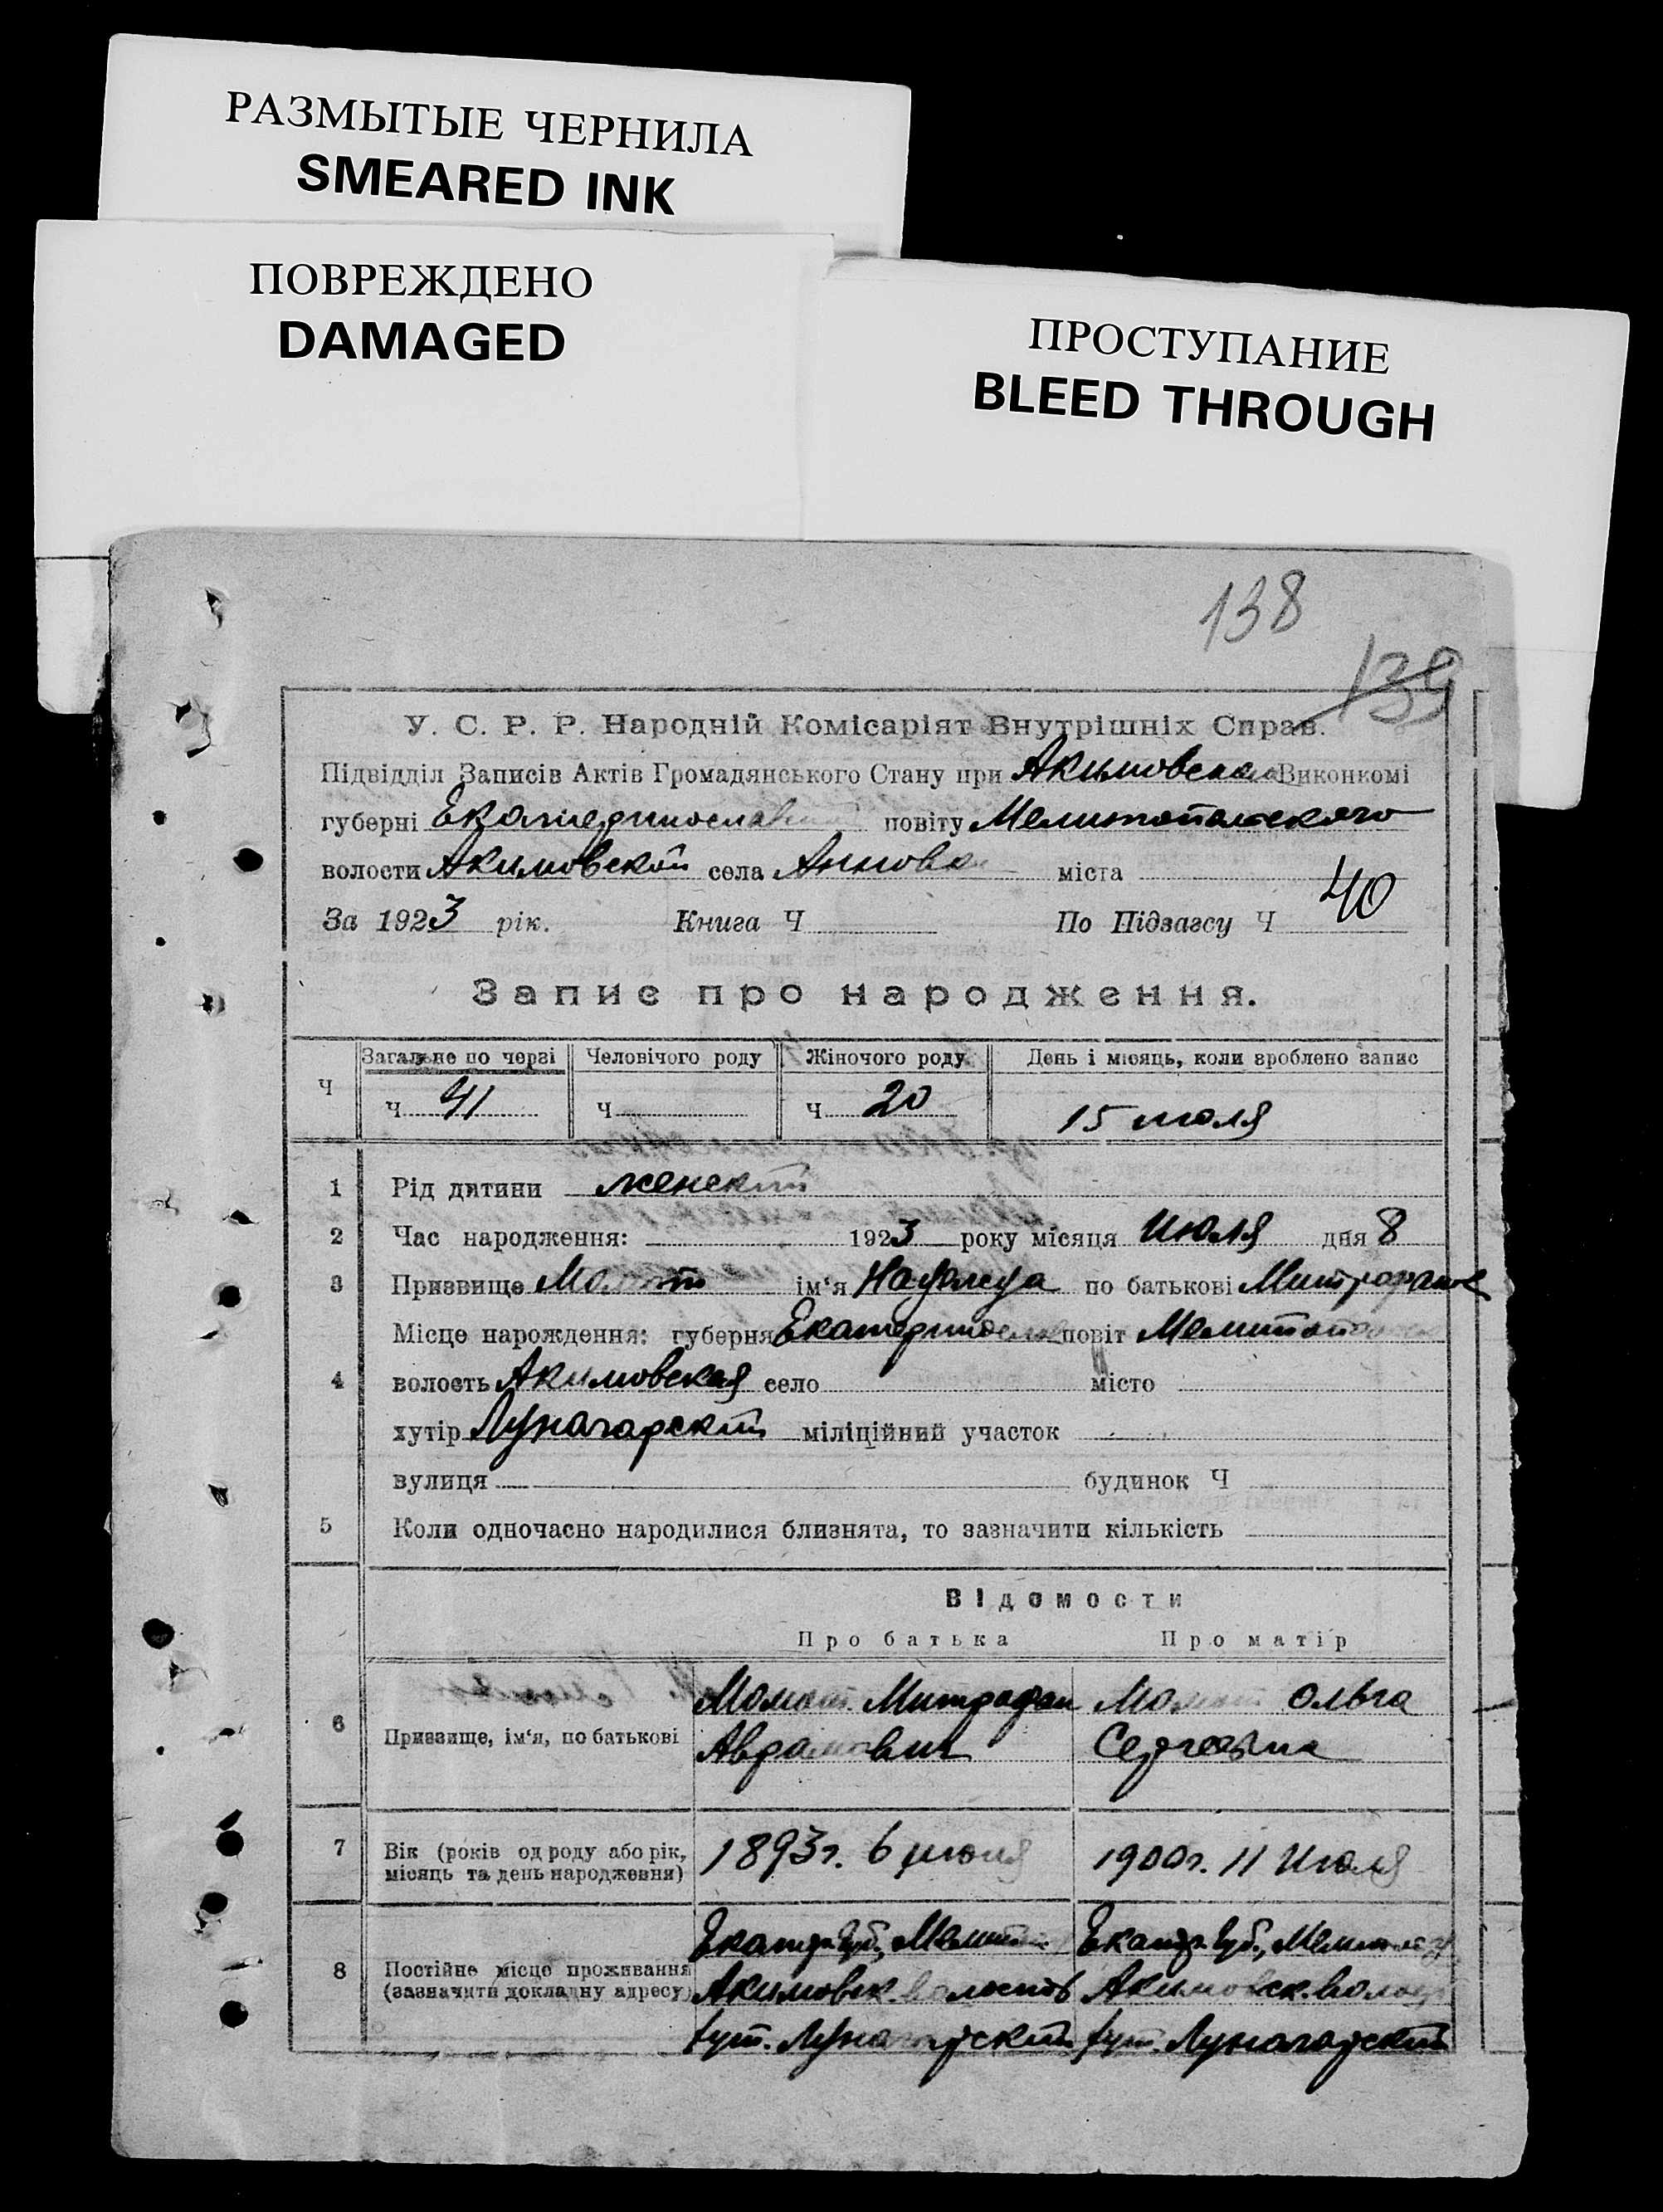 РАЗМЫТЫЕ ЧЕРНИЛА
SMEARED INK
ПОВРЕЖДЕНО
DAMAGED
ПРОСТУПАНИЕ
BLEED THROUGH
138
139
У. С. Р. Р. Народній Комісаріят Внутрішніх Справ.
Підвідділ Записів Актів Громадянського Стану при Акимовском Виконкомі
губерні Екатеринослав повіту Мелитопольского
волости Акимовской села Анновка міста
За 1923 рік. Книга Ч По Підзагсу Ч 40
Запис про народження.
Ч Загальне по черзі Человічого роду Жіночого роду День і місяць, коли зроблено запис
Ч 41 Ч Ч 20 15 июля
1 Рід дитини женский
2 Час народження: 1923 року місяця Июля дня 8
3 Призвище ім'я Надежда по батькові
Місце нарождення: губерня Екатеринослав повіт Мелитопол
4 волость Акимовская село місто
хутір Луначарский міліційний участок
вулиця будинок Ч
5 Коли одночасно народилися близнята, то зазначити кількість
Відомости
Про батька Про матір
6 Призвище, ім'я, по батькові
Митрофан Ольга
Аврамович Сергеевна
7 Вік (років од роду або рік, місяць та день народження)
1893г. 6 июня 1900г. 11 Июля
8 Постійне місце проживання (зазначити докладну адресу)
Екатер. Губ., Мелитоп Екатер. Губ., Мелитоп
Акимовск. волость Акимовск. волость
хут. Луначарский хут. Луначарский